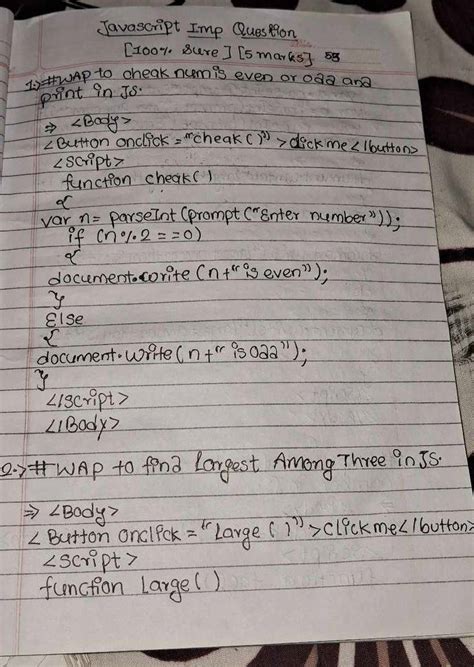 Javascript Imp Question
[100% Sure] [5 marks]
1.) # WAP to cheak num is even or odd and
print in JS.
⇒ <Body>
<Button onclick="cheak()">click me</button>
<Script>
function cheak()
{
var n= parseInt(prompt("Enter number"));
if (n%2==0)
{
document.write(n+"is even");
}
Else
{
document.write(n+"is odd");
}
</Script>
</Body>
2.) # WAP to find Largest Among Three in JS.
⇒ <Body>
<Button onclick="Large()">click me</button>
<Script>
function Large()